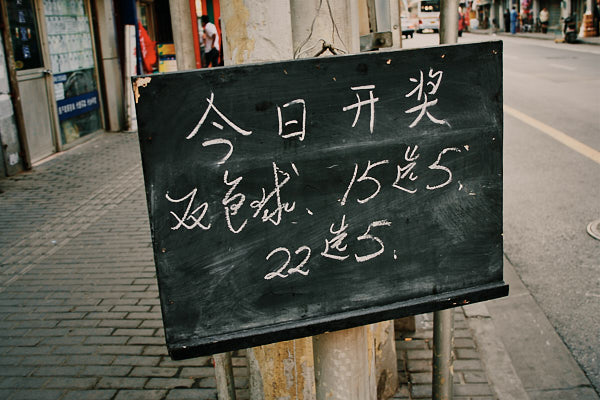 今日开奖
双色球、15送5;
22送5.